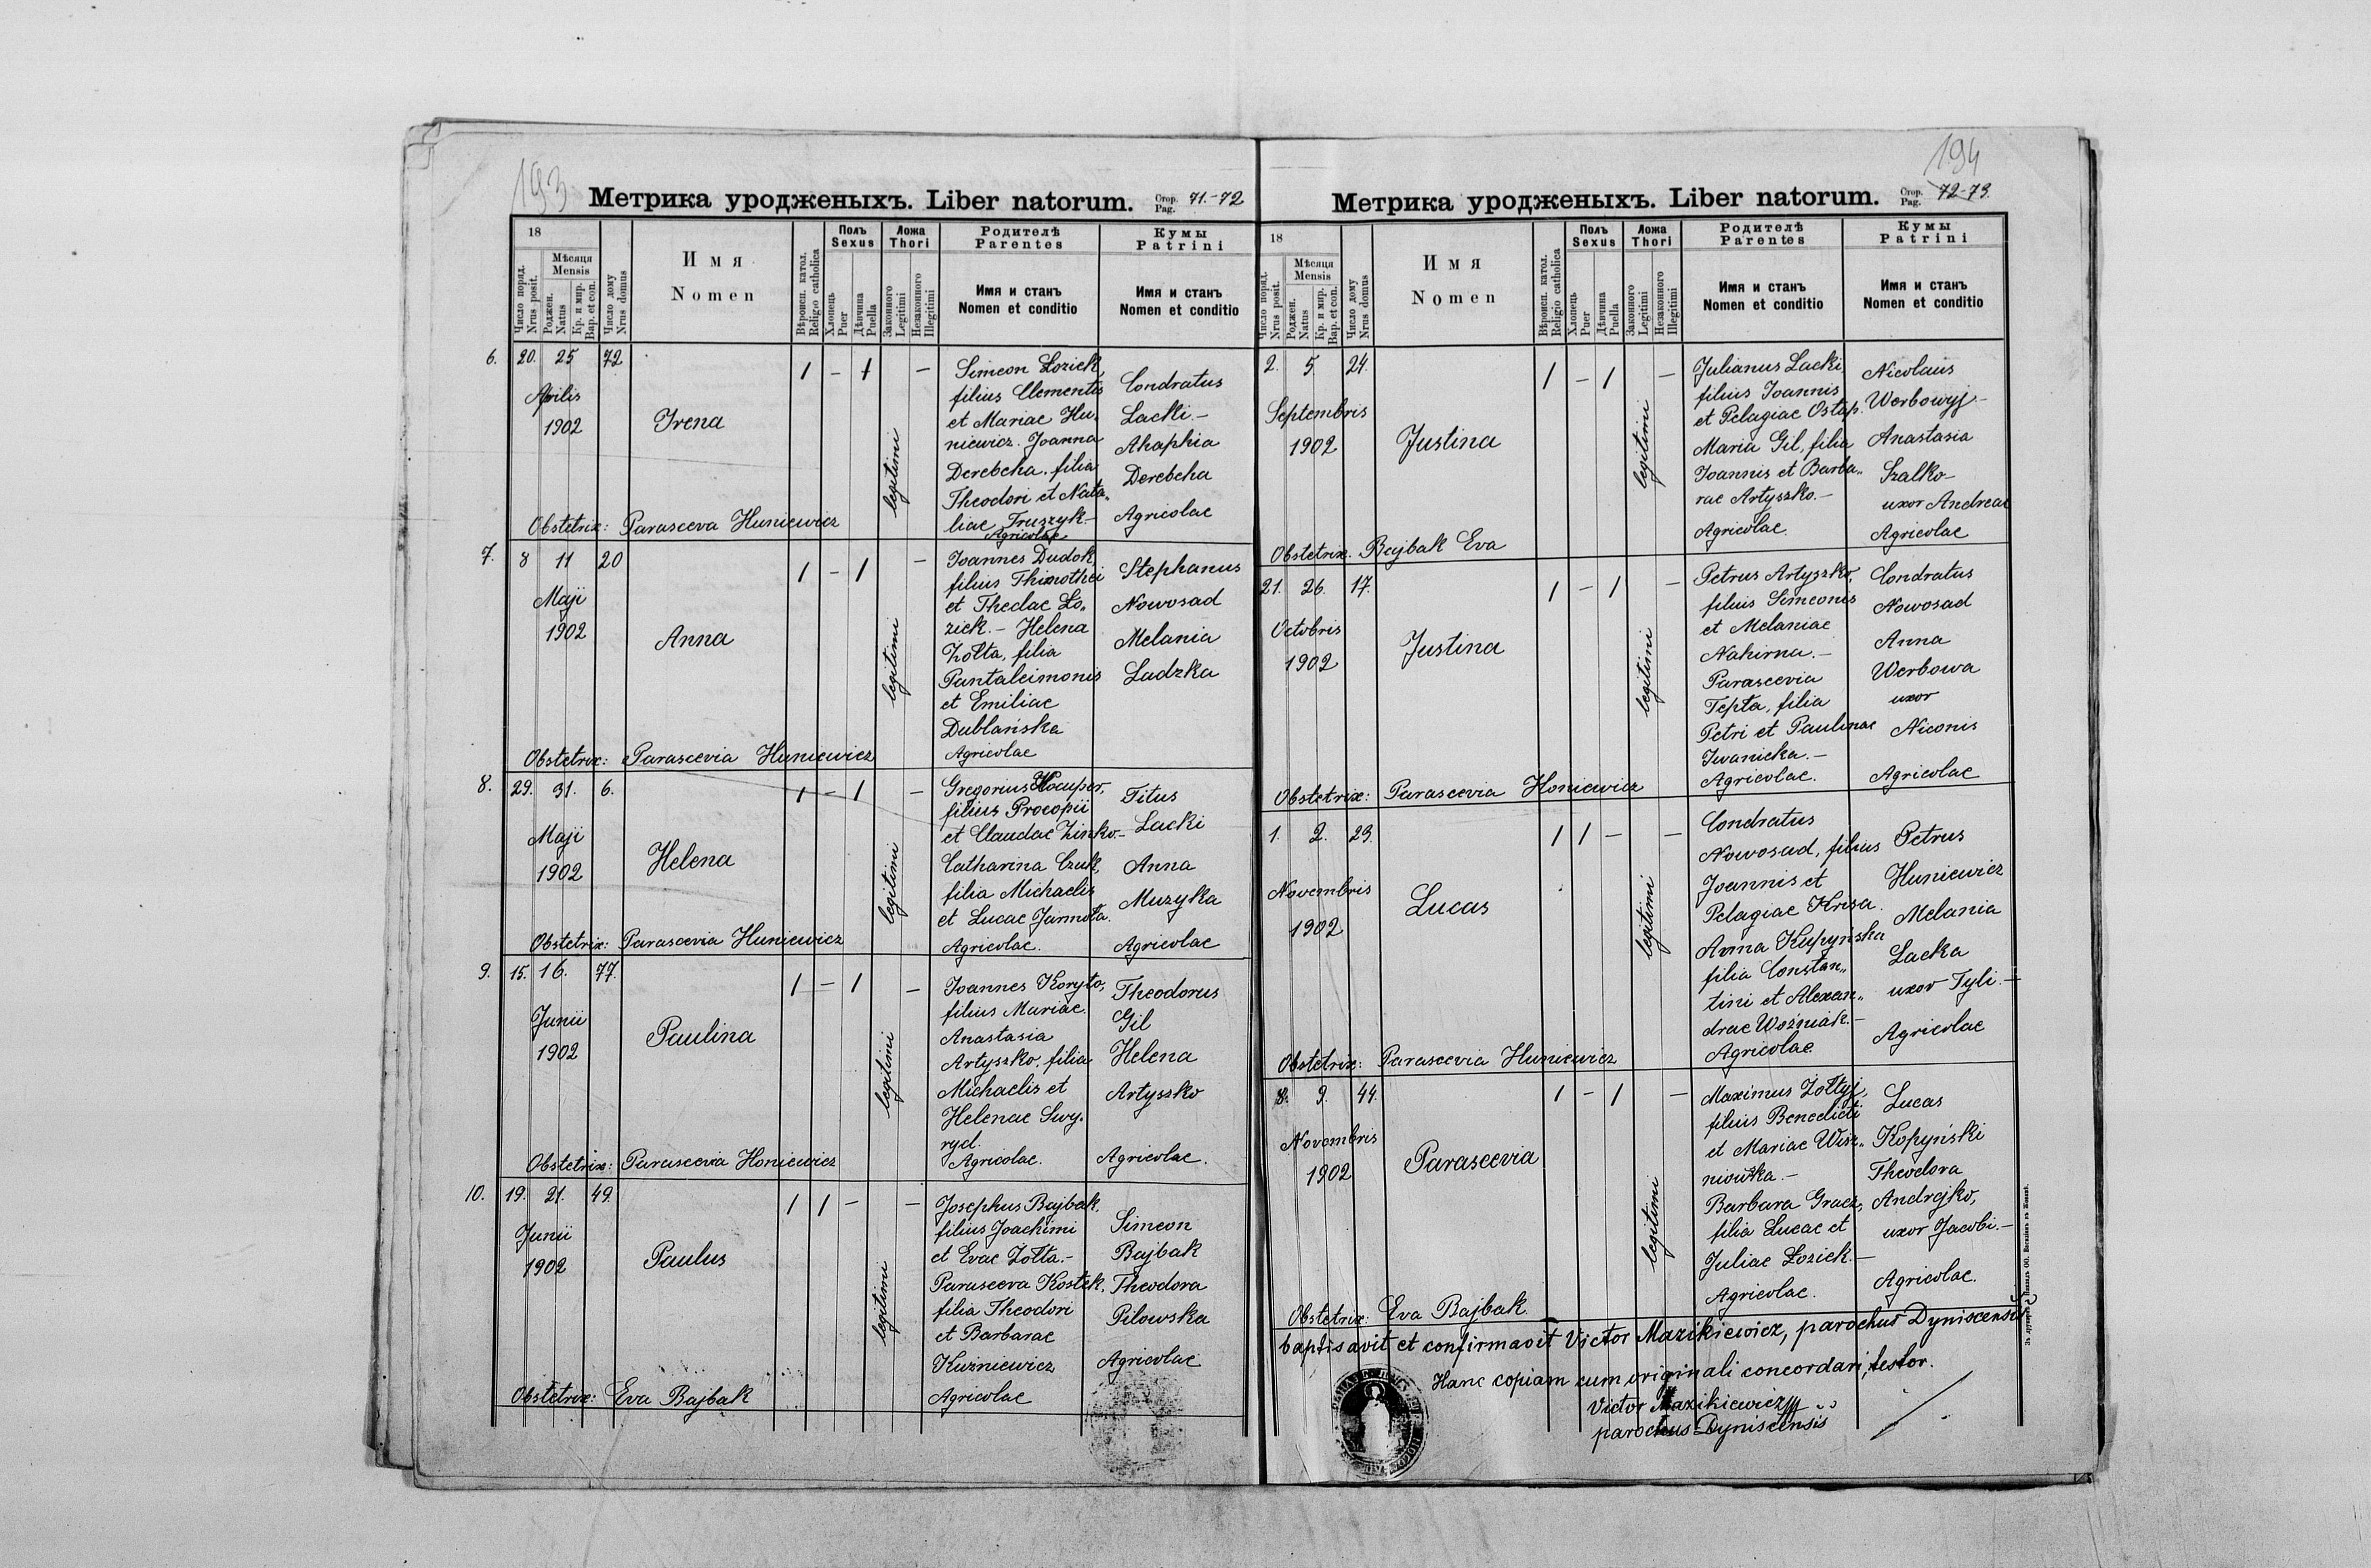 193
Метрика уродженыхъ. Liber natorum. Стор. Pag. 71.-72
18
Число поряд. Nrus posit.
Мѣсяця Mensis
Роджен. Natus
Кр. и мир. Bap. et con.
Число дому Nrus domus
Имя
Nomen
Вѣроисп. катол. Religio catholica
Полъ Sexus
Хлопець Puer
Дѣвчина Puella
Ложа Thori
Законного Legitimi
Незаконного Illegitimi
Родителѣ
Parentes
Имя и станъ
Nomen et conditio
Кумы
Patrini
Имя и станъ
Nomen et conditio
6. 20. 25 72
Aprilis
1902
Irena
1 - 1 -
legitimi
Simeon Łozick,
filius Clementis
et Mariae Hu,
niewicz. Joanna
Derebcha. filia
Theodori et Nata,,
liae Truszyk.-
Agricolae
Condratus
Lacki.-
Ahaphia
Derebcha
Agricolae
Obstetrix: Parasceva Huniewicz
7. 8 11 20
Maji
1902
Anna
1 - 1 -
legitimi
Joannes Dudok,
filius Thimothei
et Theclae Ło,,
zick.- Helena
Żołta, filia
Pantaleimonis
et Emiliae
Dublańska
Agricolae
Stephanus
Nowosad
Melania
Ladzka
Obstetrix: Parascevia Huniewicz
8. 29. 31. 6.
Maji
1902
Helena
1 - 1 -
legitimi
filius Procopii
et Claudae Zinko.-
Catharina Czuk,
filia Michaelis
et Lucae Jarmoła.
Agricolae.
Titus
Lacki
Anna
Muzyka
Agricolae
Obstetrix: Parascevia Huniewicz
9. 15. 16. 77.
Junii
1902
Paulina
1 - 1 -
legitimi
Joannes Koryto,
filius Mariae.
Anastasia
Artyszko, filia
Michaelis et
Helenae Swy,
ryd.
Agricolae.
Theodorus
Gil
Helena
Artyszko
Agricolae.
Obstetrix: Parascevia Honiewicz
10. 19. 21. 49.
Junii
1902
Paulus
1 1 - -
legitimi
Josephus Bajbak.
filius Joachimi
et Evae Żołta.-
Parasceva Kostek,
filia Theodori
et Barbarae
Kuźniewicz
Agricolae
Simeon
Bajbak
Theodora
Pilowska
Agricolae
Obstetrix: Eva Bajbak
194
Метрика уродженыхъ. Liber natorum. Стор. Pag. 72-73.
18
Число поряд. Nrus posit.
Мѣсяця Mensis
Роджен. Natus
Кр. и мир. Bap. et con.
Число дому Nrus domus
Имя
Nomen
Вѣроисп. катол. Religio catholica
Полъ Sexus
Хлопець Puer
Дѣвчина Puella
Ложа Thori
Законного Legitimi
Незаконного Illegitimi
Родителѣ
Parentes
Имя и станъ
Nomen et conditio
Кумы
Patrini
Имя и станъ
Nomen et conditio
2. 5 24.
Septembris
1902
Justina
1 - 1 -
legitimi
Julianus Lacki,
filius Joannis
et Pelagiae Ostap.
Maria Gil, filia
Joannis et Barba,,
rae Artyszko.-
Agricolae.
Nicolaus
Werbowyj.-
Anastasia
Szalko-
uxor Andreae
Agricolae
Obstetrix. Bajbak Eva
21. 26. 17.
Octobris
1902
Justina
1 - 1 -
legitimi
Petrus Artyszko,
filius Simeonis
et Melaniae
Nahirna.-
Parascevia
Tepta, filia
Petri et Paulinae
Iwanicka.-
Agricolae.
Condratus
Nowosad
Anna
Werbowa
uxor
Niconis
Agricolae
Obstetrix: Parascevia Honiewicz
1. 2. 23.
Novembris
1902
Lucas
1 1 - -
legitimi
Condratus
Nowosad, filius
Joannis et
Pelagiae Krisa.
Anna Kupyńska
filia Constan,,
tini et Alexan,,
drae Woźniak.-
Agricolae.
Petrus
Huniewicz
Melania
Lacka
uxor Tyli.-
Agricolae
Obstetrix: Parascevia Huniewicz
8. 9. 44.
Novembris
1902
Parascevia
1 - 1 -
legitimi
Maximus Żołtyj,
filius Benedicti
et Mariae Wisz,,
niowka.-
Barbara Gracz,
filia Lucae et
Juliae Łozick.-
Agricolae.
Lucas
Kopyński
Theodora
Andrejko,
uxor Jacobi.-
Agricolae.
Obstetrix: Eva Bajbak
baptisavit et confirmavit Victor Mazikiewicz, parochus Dyniscensis
Hanc copiam cum originali concordari, testor.
Victor Mazikiewicz
parochus Dyniscensis